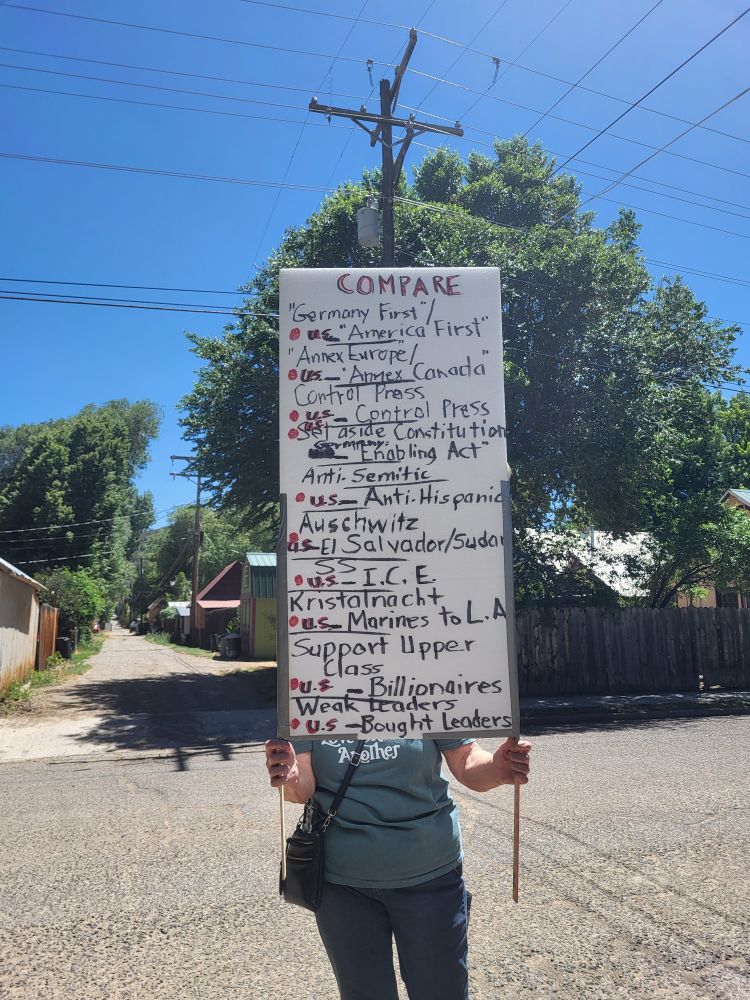 COMPARE
"Germany First"/
U.S. "America First"
"Annex Europe/
U.S. - "Annex Canada"
Control Press
U.S. - Control Press
Set aside Constitution
Germany "Enabling Act"
Anti-Semitic
U.S. - Anti-Hispanic
Auschwitz
U.S. - El Salvador/Sudan
SS
U.S. - I.C.E.
Kristalnacht
U.S. - Marines to L.A
Support Upper
Class
U.S - Billionaires
Weak Leaders
U.S - Bought Leaders
Another